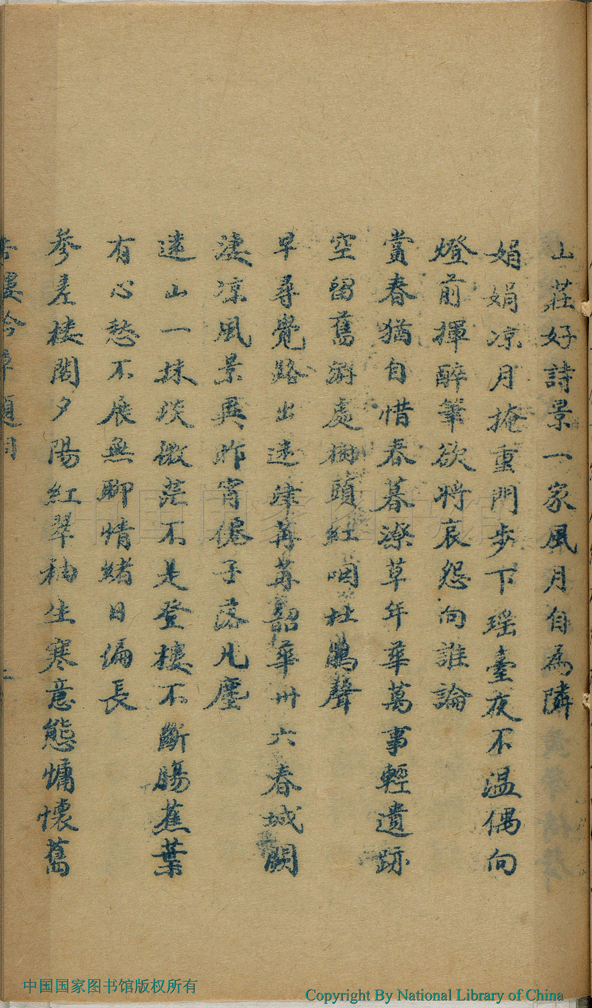 山莊好詩景一家風月自為隣
娟娟凉月掩重門步下瑶臺夜不温偶向
燈前揮醉筆欲將哀怨向誰論
賞春猶自惜春暮潦草年華萬事輕遺跡
空留舊游處樹頭紅咽杜鵑聲
早尋覺路出迷津苒苒韶華卅六春城闕
淒凉風景異昨宵僊子落凡塵
遠山一抹淡微茫不是登樓不斷腸蕉葉
有心愁不展無聊情緒日偏長
參差樓閣夕陽紅翠袖生寒意態慵懷舊
中国国家图书馆版权所有
Copyright By National Library of China